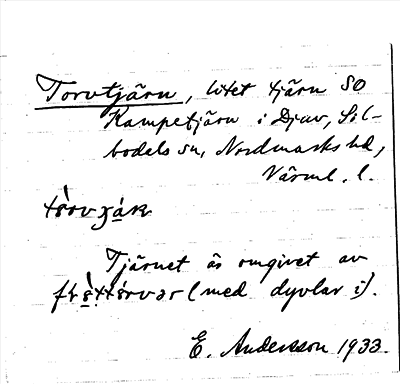 Torvtjärn, litet tjärn SO
Kampetjärn i Djuv, Sil-
bodals sn, Nordmarks hd,
Värml. l.
Tjärnet är omgivet av
(med dyvlar i).
E. Andersson 1933.